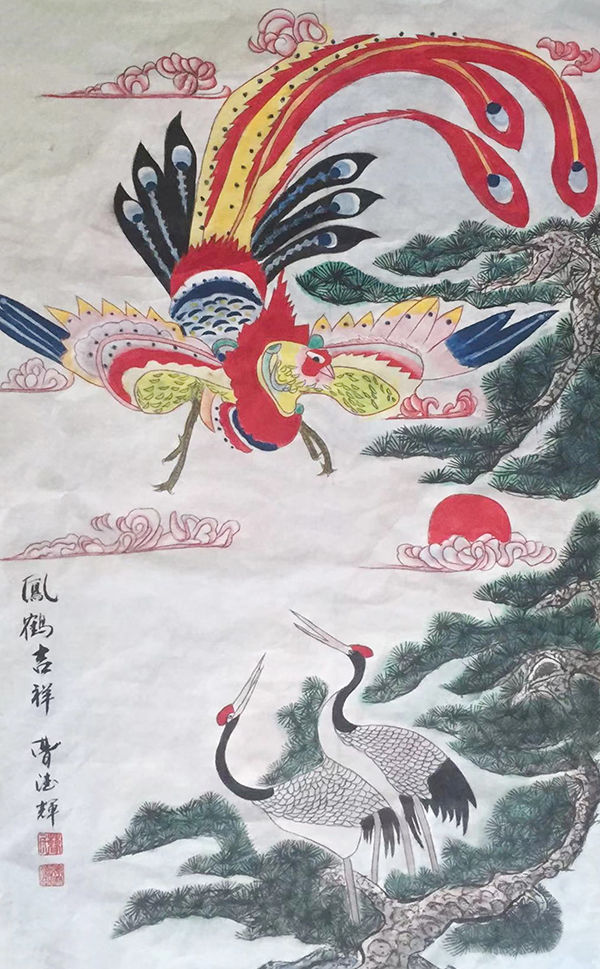 鳳鶴吉祥
曹德輝